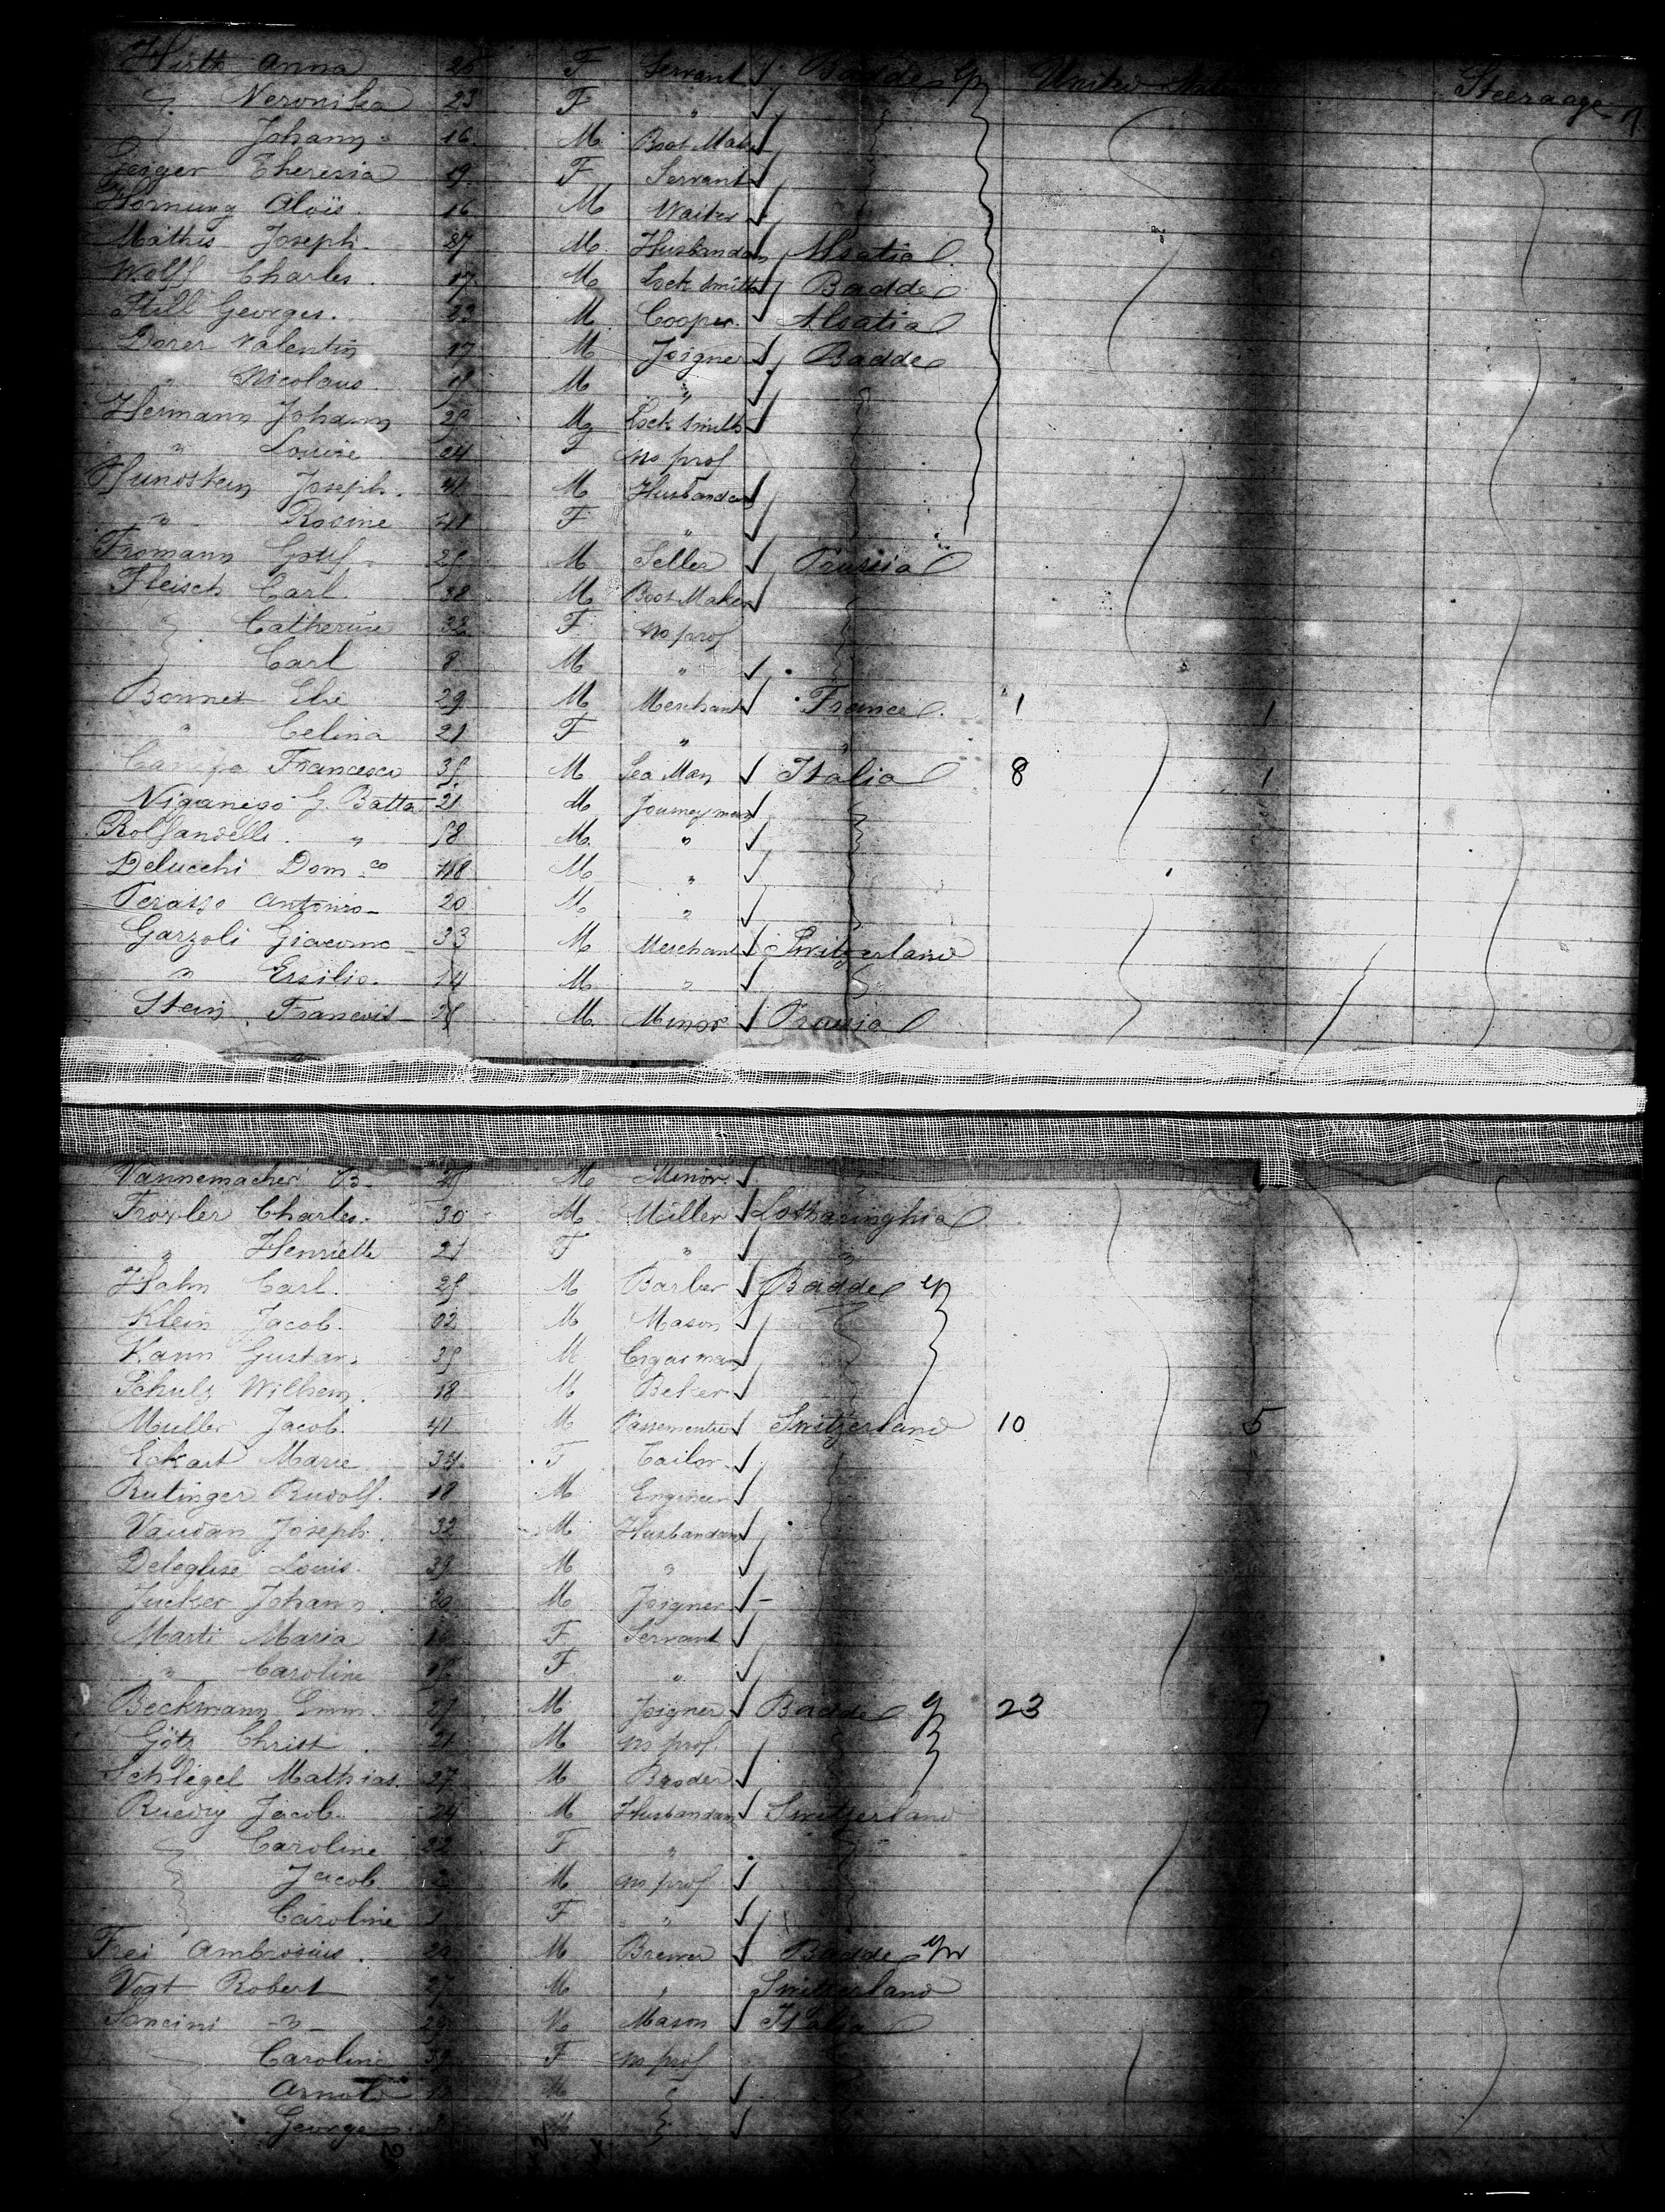 Hirth Anna 26 F Servant Badde United States Steeraage
" Veronika 23 F "
Johann 16 M Boot Maker
Geiger Theresia 19 F Servant
Hornung Aloïs 16 M Waiter
Mathis Joseph 27 M Husbandan Alsatia
Wolff Charles 17 M Lock Smith Badde
Still Georges 23 M Cooper Alsatia
Dorer Valentin 17 M Joigner Badde
" Nicolaus M "
Hermann Johann M Lock Smith
" Louise 24 F no prof
Hundstein Joseph M Husbandan
" Rosine 41 F "
Fromann M Seller Prussia
Fleisch Carl 38 M Boot Maker
Catherine 32 F no prof
Carl 8 M "
Bonnet Elie 29 M Merchant France 1 1
" Celina 21 F " "
Canepa Francesco 35 M Sea Man Italia 8 1
Viganego G. Batta 21 M Journeyman
Rolfandelli " 58 M "
Delucchi Dom.co 18 M "
Perasso Antonio 20 M "
Garzoli Giacomo 33 M Merchant Switzerland
" Ersilio 14 M "
Stein Francois M Minor Prussia
Vannemacher B. M Minor
Troxler Charles 30 M Miller Lotharinghia
" Henriette 21 F " "
Hahn Carl 25 M Barber Badde
Klein Jacob 02 M Mason
Kann Gustav 35 M Cigar man
Schulz Wilhem 18 M Beker
Muller Jacob 41 M Passementier Switzerland 10 5
Eckart Marie 34 F Tailor
Rutinger Rudolf 18 M Engineer
Vaudan Joseph 32 M Husbandan
Deleglise Louis 39 M "
Jucker Johann 20 M Joigner
Marti Maria F Servant
" Caroline F "
Beckmann Emm. 27 M Joigner Badde 23 7
Götz Christ 21 M no prof.
Schlegel Mathias 27 M
Ruedy Jacob 24 M Husbandan Switzerland
Caroline 22 F "
Jacob 2 M no prof
Caroline 1 F "
Frei Ambrosius 29 M Brewer Badde
Vogt Robert 27 M " Switterland
" 29 M Mason Italia
Caroline 39 F no prof
Arnold M "
Georges M